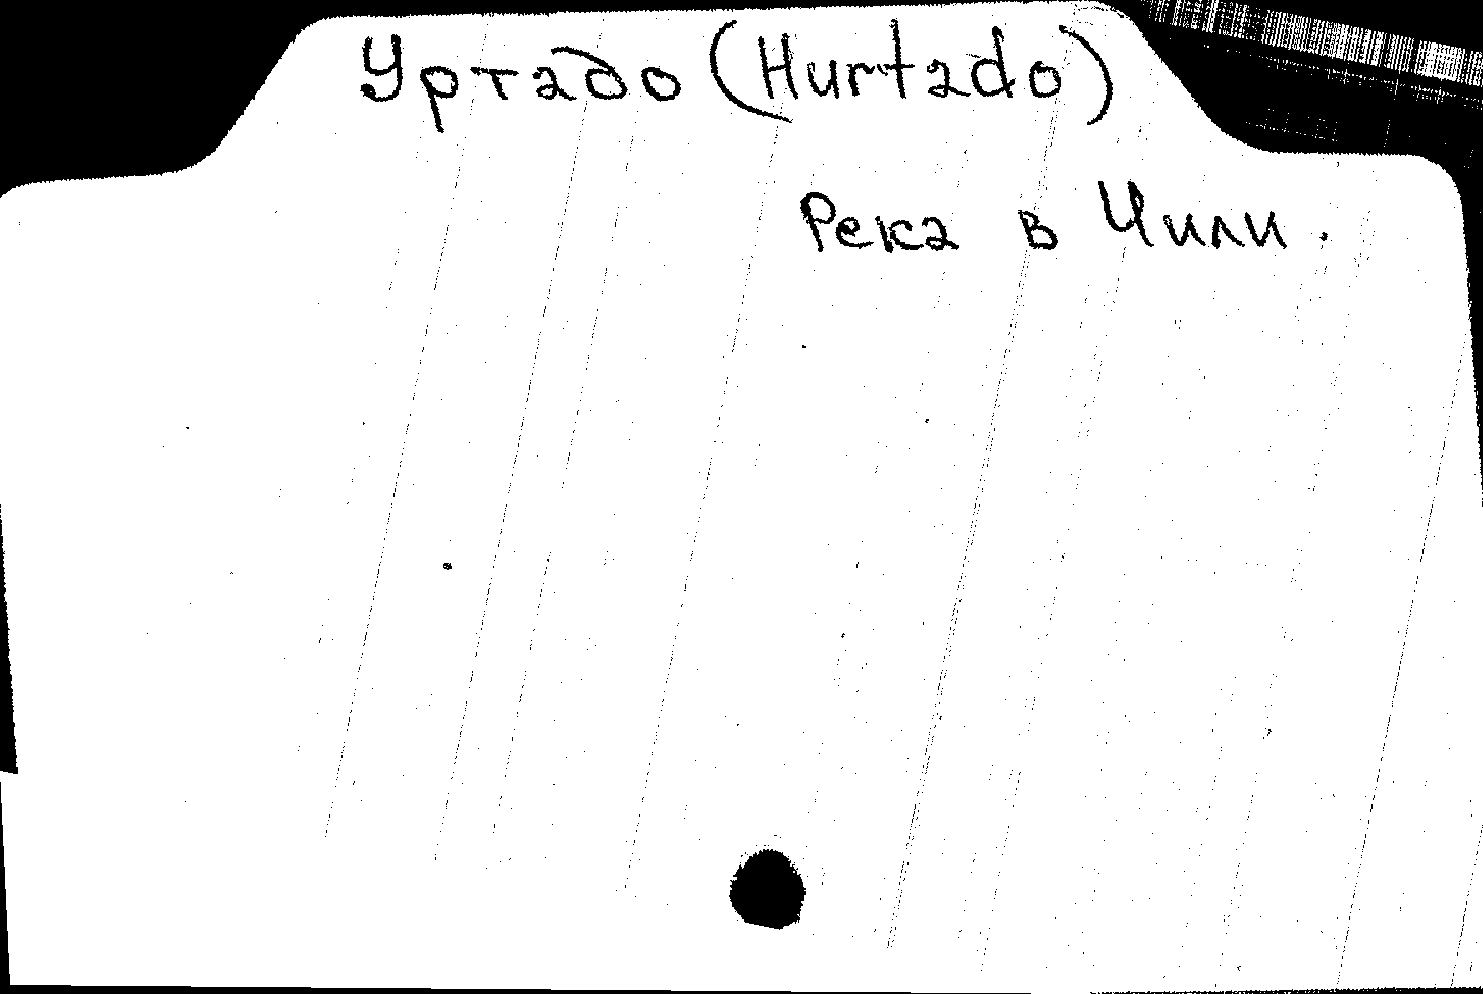 Уртадо (Hurtado)
Река в Чили.